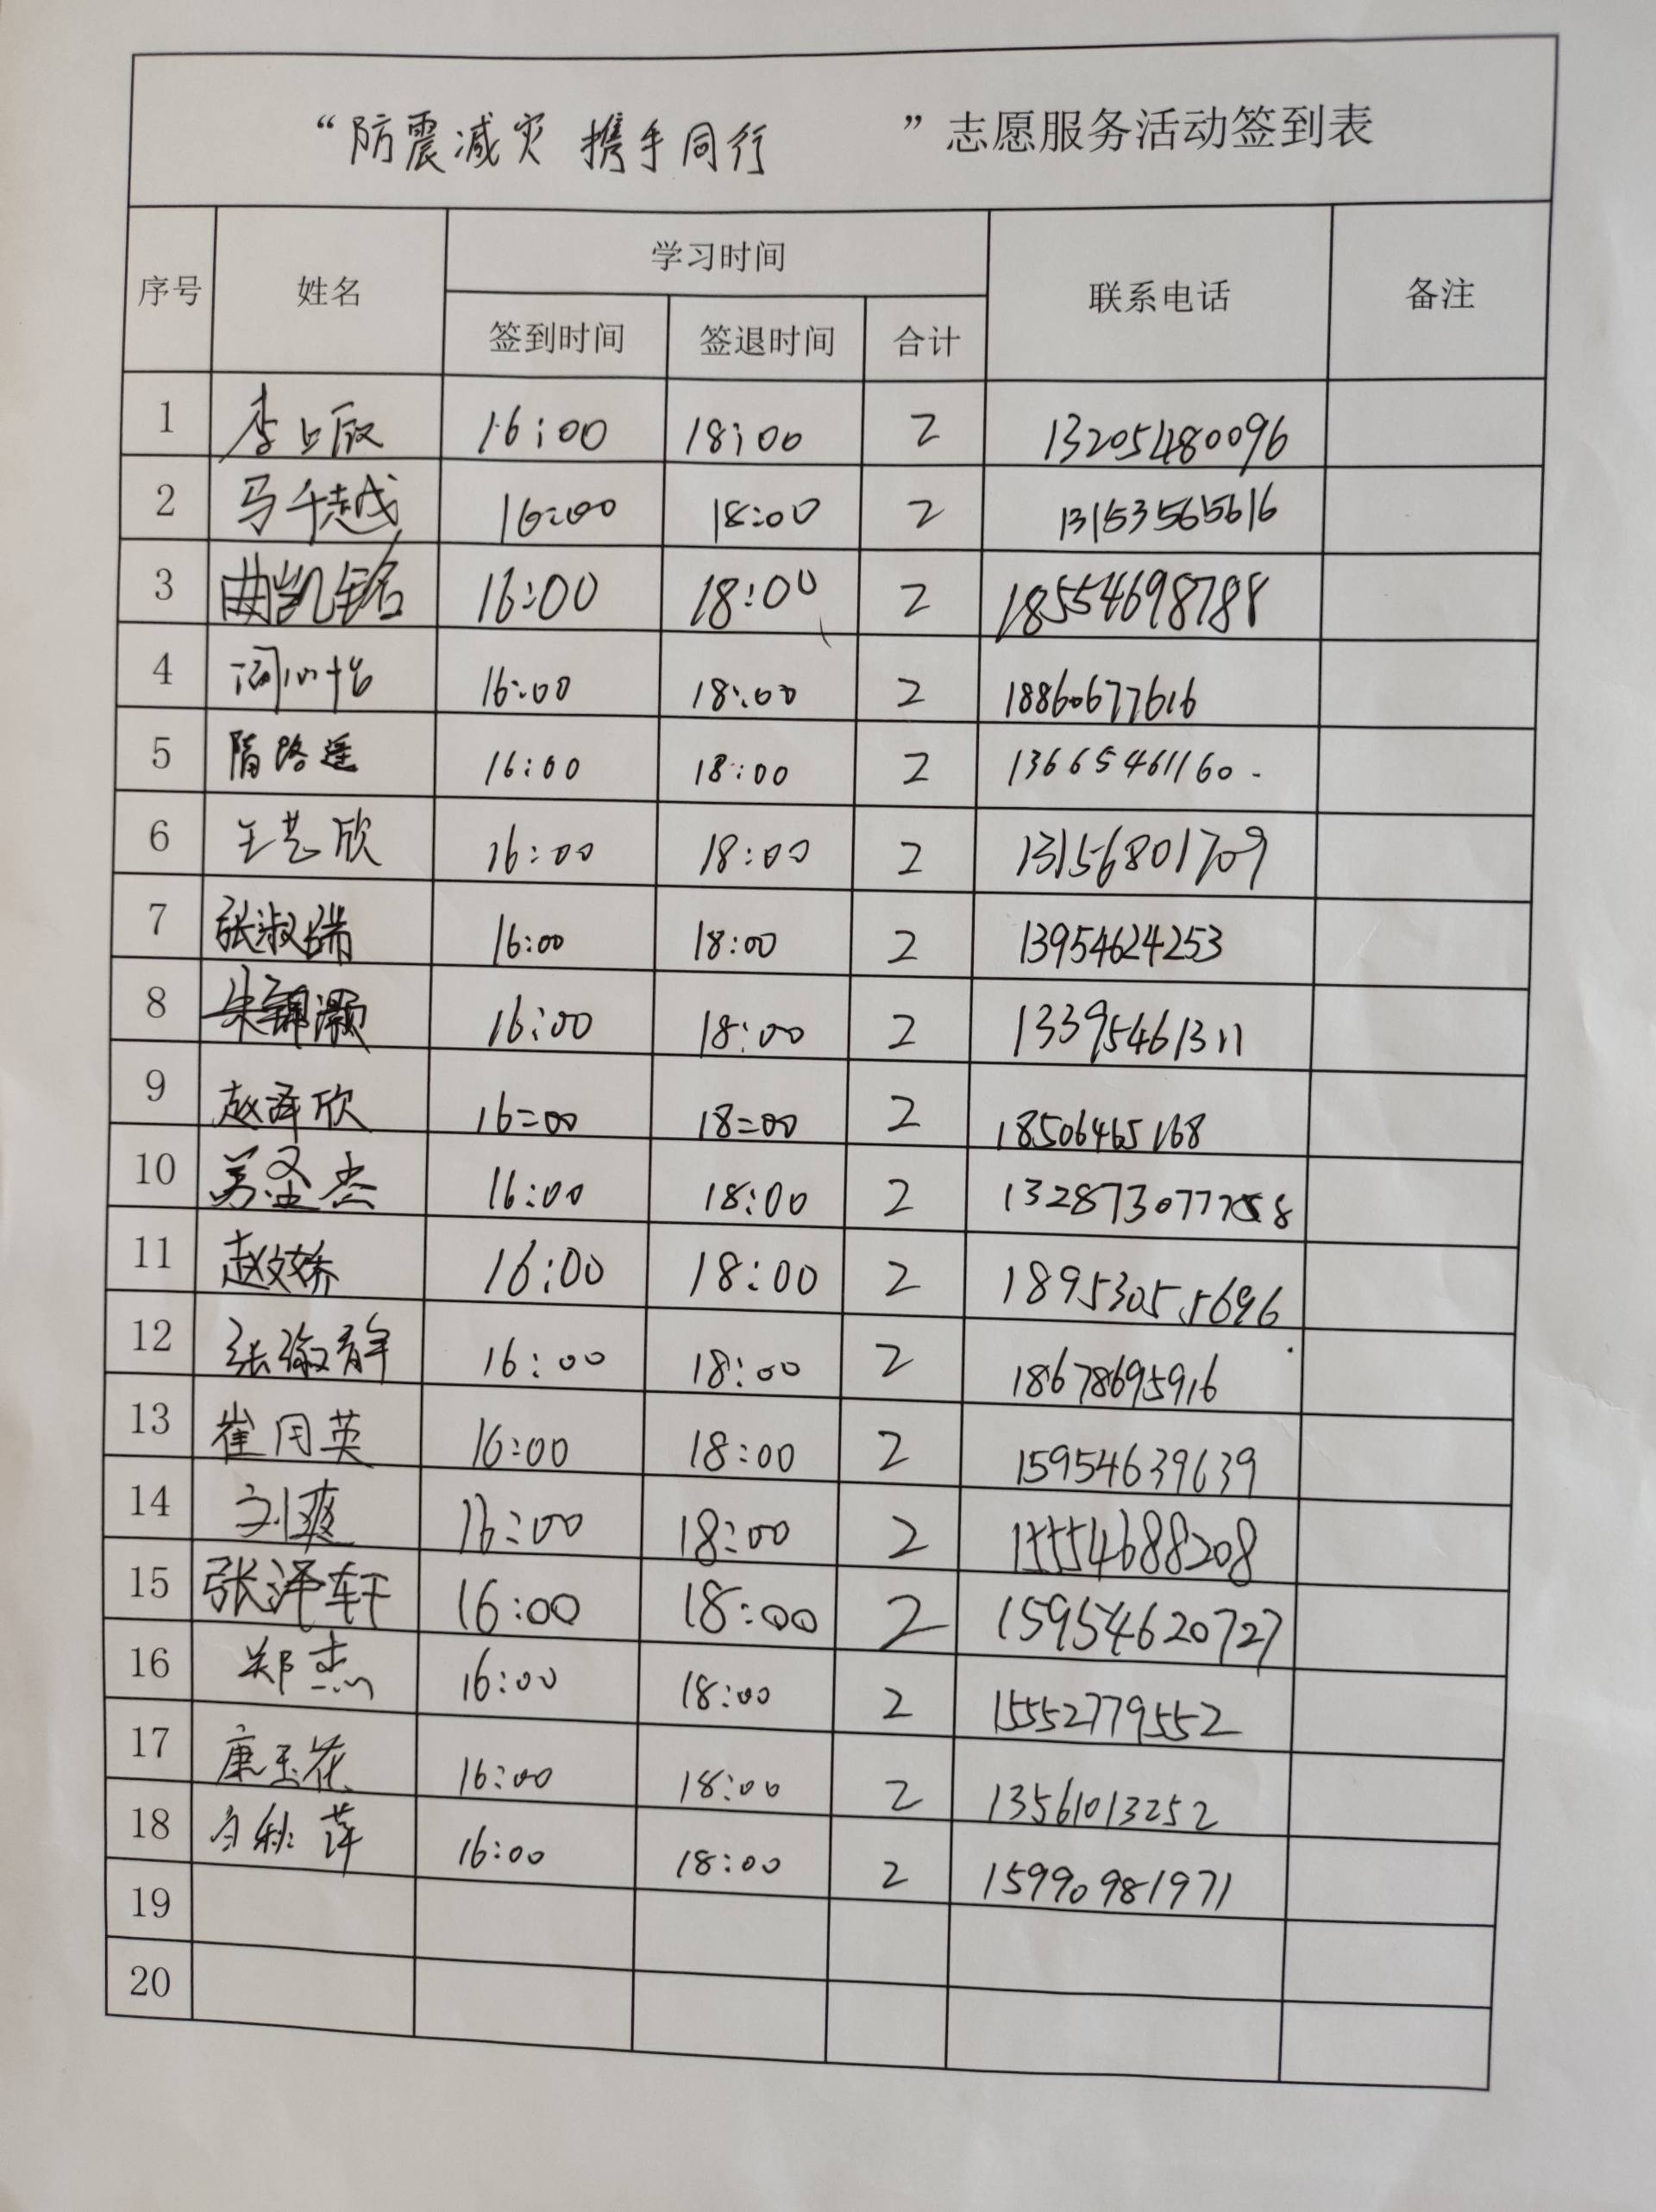 “防震减灾 携手同行 ”志愿服务活动签到表
序号 姓名 学习时间 联系电话 备注
签到时间 签退时间 合计
1 李 16:00 18:00 2 13205480096
2 马千越 16:00 18:00 2 13153565616
3 曲凯铭 16:00 18:00 2 18554698788
4 16:00 18:00 2 18860677616
5 隋路遥 16:00 18:00 2 13665461160
6 王艺欣 16:00 18:00 2 13156801709
7 张淑瑞 16:00 18:00 2 13954624253
8 朱锦灏 16:00 18:00 2 13395461311
9 赵泽欣 16:00 18:00 2 18506465168
10 16:00 18:00 2
11 赵文娇 16:00 18:00 2 18953055696
12 张淑静 16:00 18:00 2 18678695916
13 崔同英 16:00 18:00 2 15954639639
14 刘爽 16:00 18:00 2 15554688208
15 张泽轩 16:00 18:00 2 15954620727
16 郑杰 16:00 18:00 2 15552779552
17 康玉花 16:00 18:00 2 13561013252
18 秋萍 16:00 18:00 2 15990981971
19
20